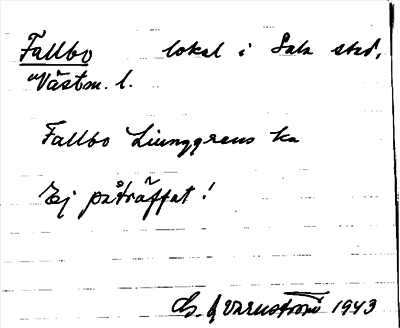 Fallbo lokal i Sala stad,
Västm. l.
Fallbo Liunggrens ka
Ej påträffat!
G. A Varnström 1943